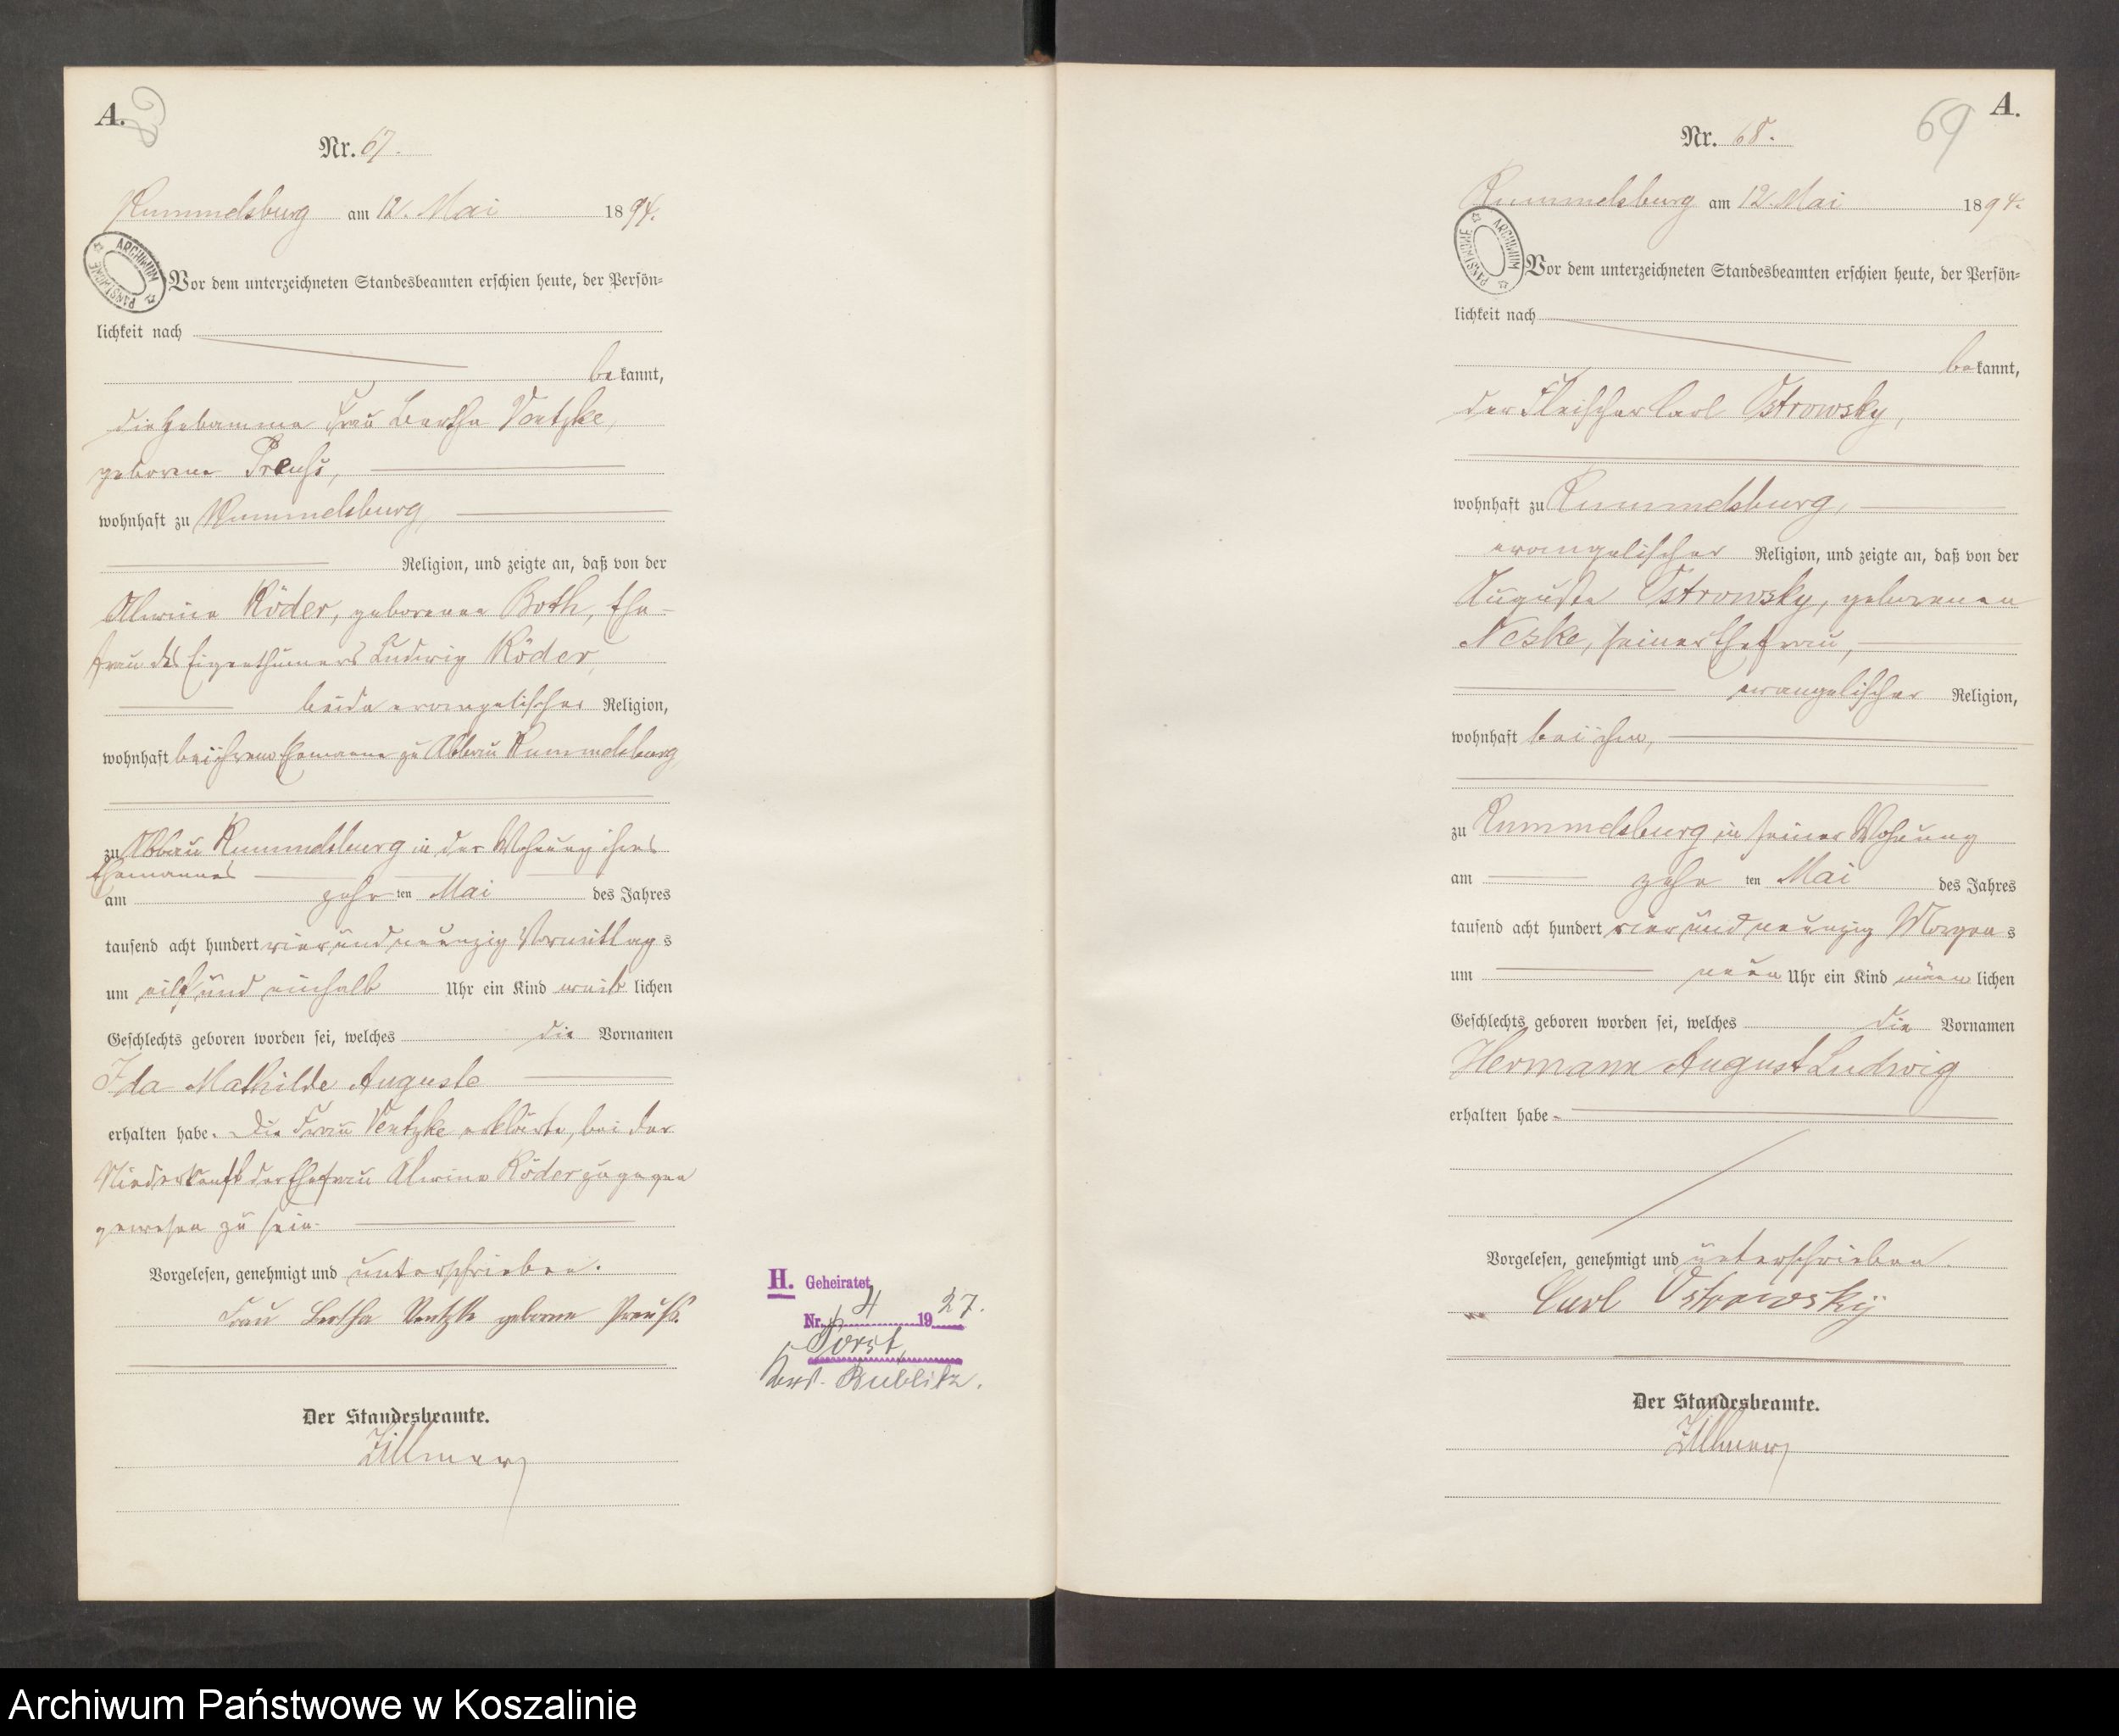 A.
Nr. 67.
Rummelsburg am 12. Mai 1894.
ARCHIWUM PAŃSTWOWE
Vor dem unterzeichneten Standesbeamten erschien heute, der Persön-
lichkeit nach
bekannt,
die Hebamme Frau Bertha Ventzke,
geborene Preuß,
wohnhaft zu Rummelsburg,
Religion, und zeigte an, daß von der
Alwine Röder, geborenen Both, Ehe-
frau des Eigenthümers Ludwig Röder,
beide evangelischer Religion,
wohnhaft bei ihrem Ehemanne zu Abbau Rummelsburg,
zu Abbau Rummelsburg in der Wohnung ihres
Ehemannes
am zehnten Mai des Jahres
tausend acht hundert vier und neunzig Vormittags
um eilf und einhalb Uhr ein Kind weiblichen
Geschlechts geboren worden sei, welches die Vornamen
Ida Mathilde Auguste
erhalten habe. Die Frau Ventzke erklärte, bei der
Niederkunft der Ehefrau Alwine Röder zugegen
gewesen zu sein.
Vorgelesen, genehmigt und unterschrieben.
Frau Bertha Ventzke geborene Preuß.
Der Standesbeamte.
Zillmer
H. Geheiratet
Nr. 4 1927.
Porst,
Krs. Bublitz.
69
A.
Nr. 68.
Rummelsburg am 12. Mai 1894.
ARCHIWUM PAŃSTWOWE
Vor dem unterzeichneten Standesbeamten erschien heute, der Persön-
lichkeit nach
bekannt,
der Fleischer Carl Ostrowsky,
wohnhaft zu Rummelsburg,
evangelischer Religion, und zeigte an, daß von der
Auguste Ostrowsky, geborenen
Neske, seiner Ehefrau,
evangelischer Religion,
wohnhaft bei ihm,
zu Rummelsburg in seiner Wohnung
am zehnten Mai des Jahres
tausend acht hundert vier und neunzig Morgens
um neun Uhr ein Kind männlichen
Geschlechts geboren worden sei, welches die Vornamen
Hermann August Ludwig
erhalten habe
Vorgelesen, genehmigt und unterschrieben.
Carl Ostrowskÿ
Der Standesbeamte.
Zillmer
Archiwum Państwowe w Koszalinie